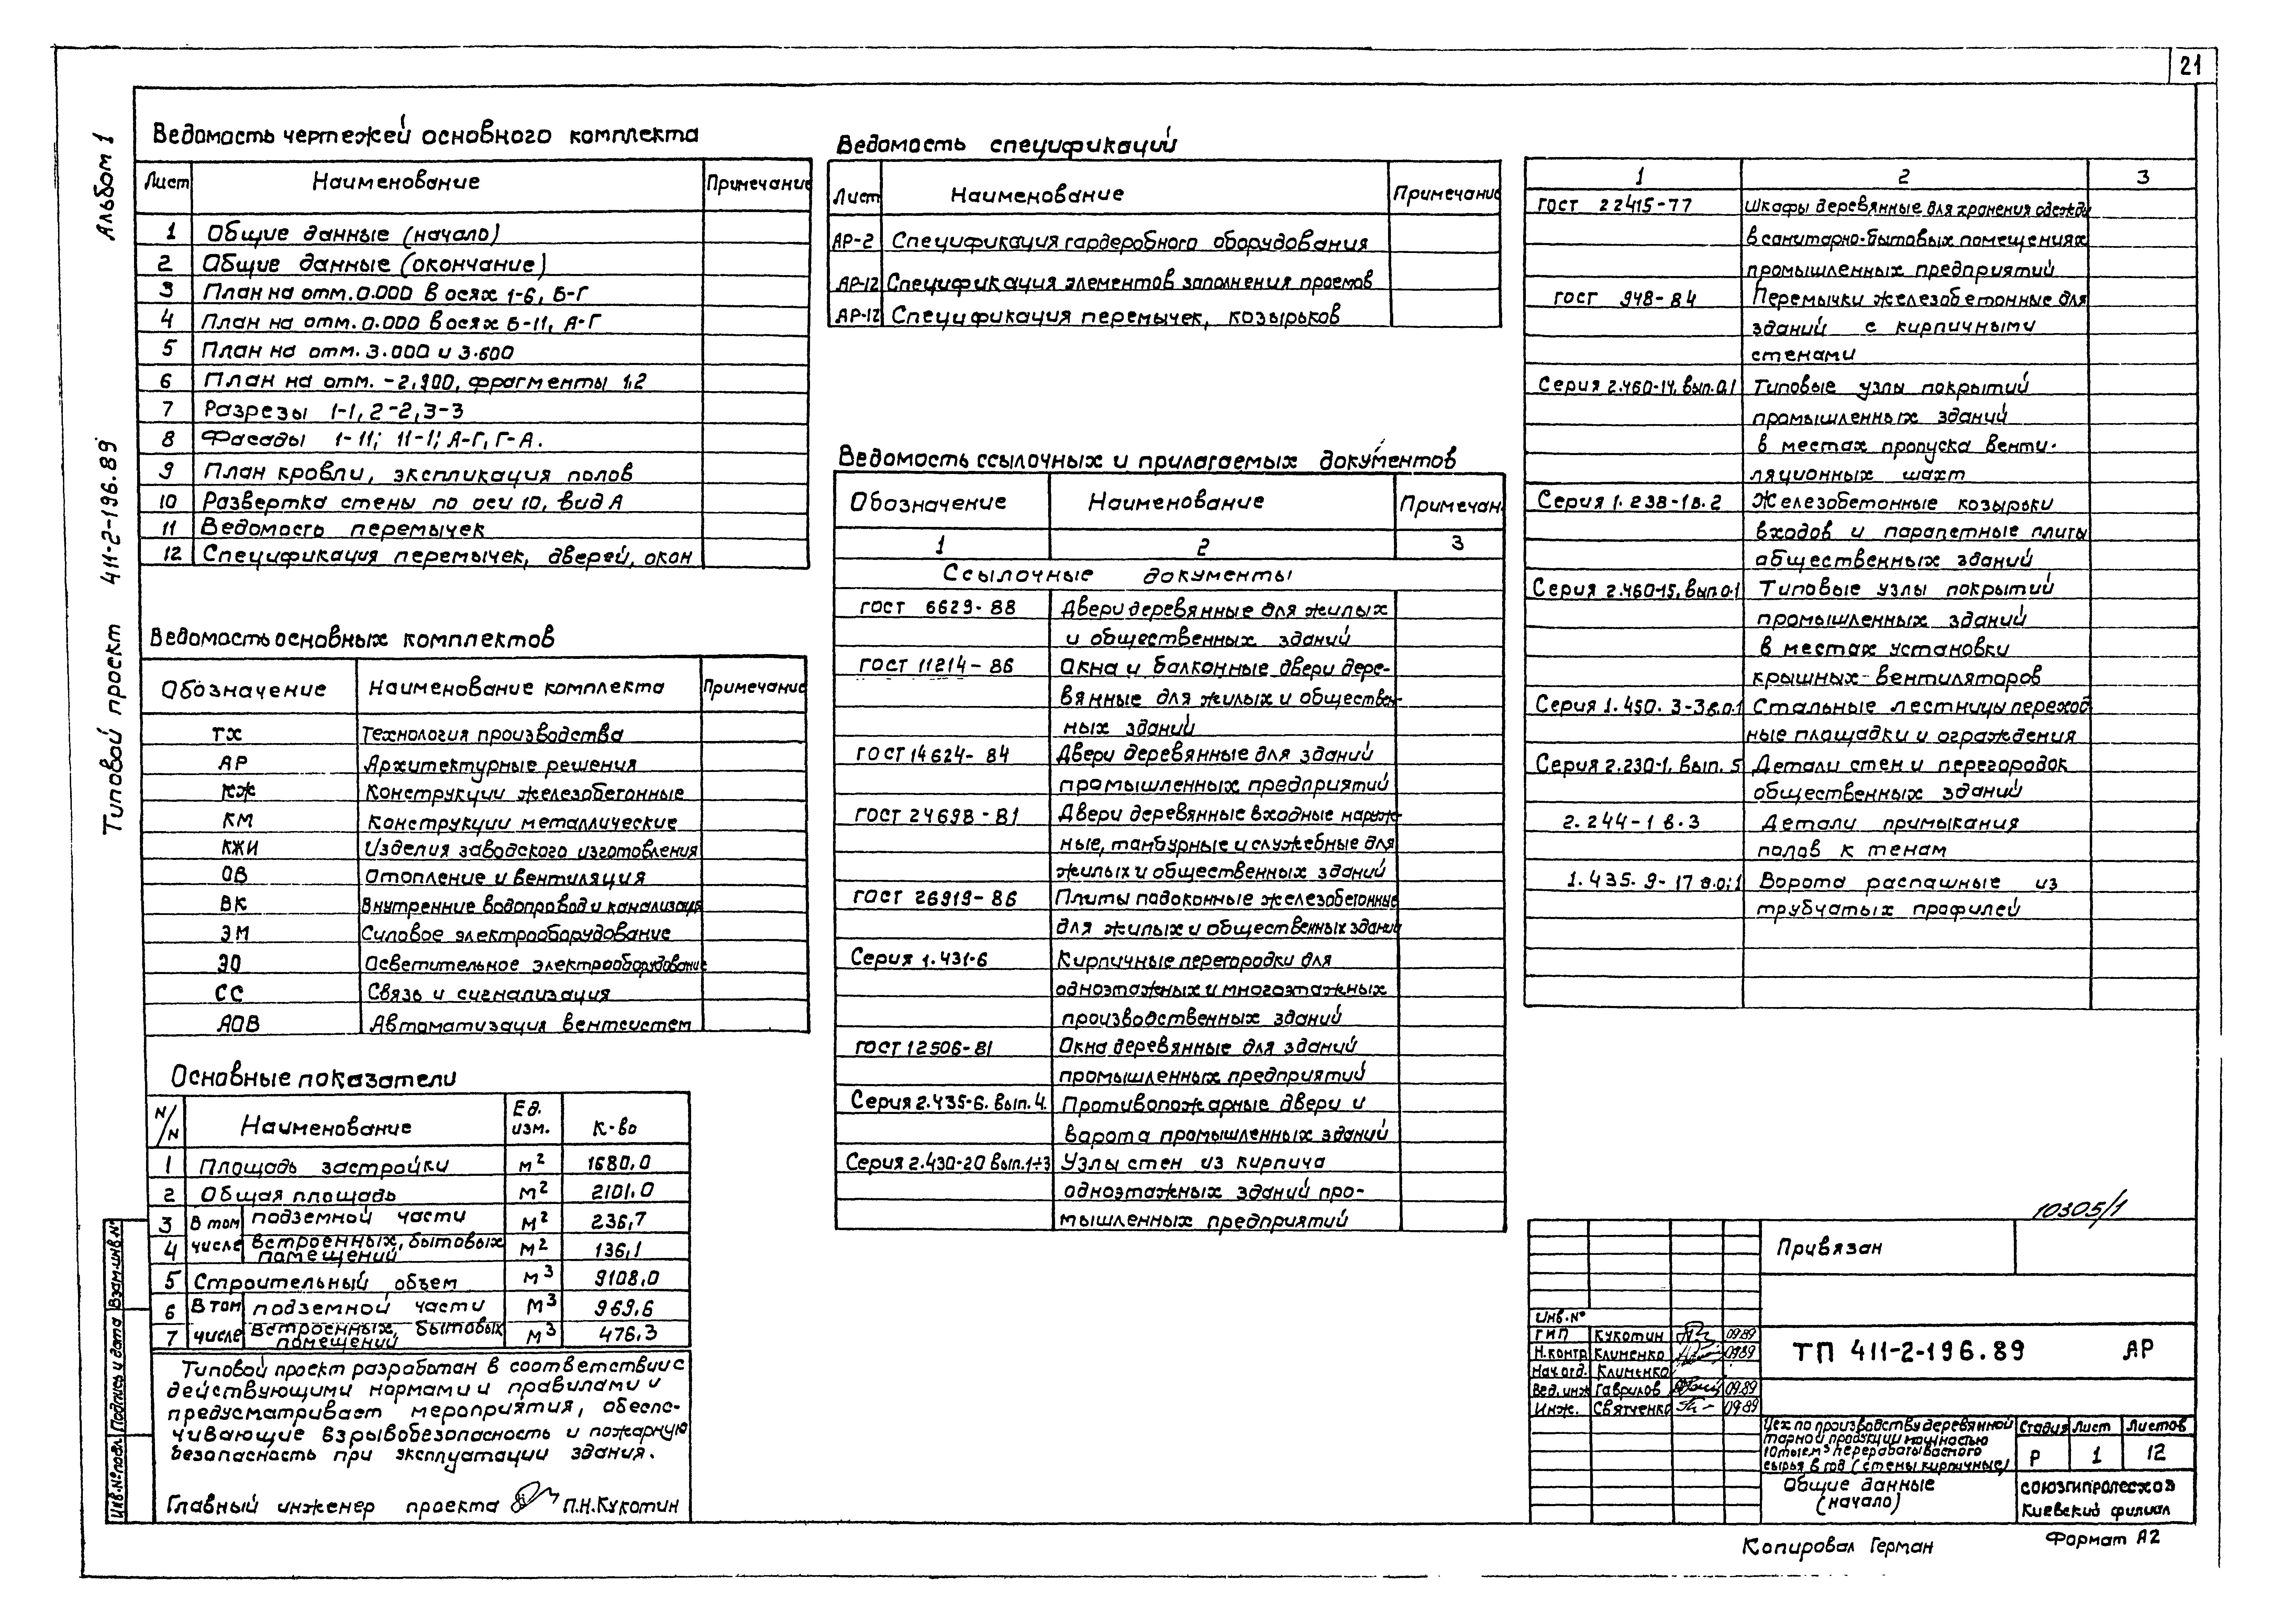 21
Альбом 1
Типовой проект 411-2-196.89
Ведомость чертежей основного комплекта
Лист Наименование Примечание
1 Общие данные (начало)
2 Общие данные (окончание)
3 План на отм. 0.000 в осях 1-6, Б-Г
4 План на отм. 0.000 в осях 6-11, А-Г
5 План на отм. 3.000 и 3.600
6 План на отм. -2,900, фрагменты 1,2
7 Разрезы 1-1, 2-2, 3-3
8 Фасады 1-11; 11-1; А-Г, Г-А.
9 План кровли, экспликация полов
10 Развертка стены по оси 10, вид А
11 Ведомость перемычек
12 Спецификация перемычек, дверей, окон
Ведомость основных комплектов
Обозначение Наименование комплекта Примечание
ТХ Технология производства
АР Архитектурные решения
КЖ Конструкции железобетонные
КМ Конструкции металлические
КЖИ Изделия заводского изготовления
ОВ Отопление и вентиляция
ВК Внутренние водопровод и канализация
ЭМ Силовое электрооборудование
ЭО Осветительное электрооборудование
СС Связь и сигнализация
АОВ Автоматизация вентсистем
Основные показатели
N/N Наименование Ед. изм. К-во
1 Площадь застройки м² 1680,0
2 Общая площадь м² 2101,0
3 В том подземной части м² 236,7
4 числе встроенных, бытовых помещений м² 136,1
5 Строительный объем м³ 9108,0
6 В том подземной части м³ 969,6
7 числе встроенных, бытовых помещений м³ 476,3
Типовой проект разработан в соответствии с
действующими нормами и правилами и
предусматривает мероприятия, обеспе-
чивающие взрывобезопасность и пожарную
безопасность при эксплуатации здания.
Главный инженер проекта П.Н.Кукотин
Ведомость спецификаций
Лист Наименование Примечание
АР-2 Спецификация гардеробного оборудования
АР-12 Спецификация элементов заполнения проемов
АР-12 Спецификация перемычек, козырьков
Ведомость ссылочных и прилагаемых документов
Обозначение Наименование Примечан.
1 2 3
Ссылочные документы
ГОСТ 6629-88 Двери деревянные для жилых
и общественных зданий
ГОСТ 11214-86 Окна и балконные двери дере-
вянные для жилых и обществен-
ных зданий
ГОСТ 14624-84 Двери деревянные для зданий
промышленных предприятий
ГОСТ 24698-81 Двери деревянные входные наруж-
ные, тамбурные и служебные для
жилых и общественных зданий
ГОСТ 26919-86 Плиты подоконные железобетонные
для жилых и общественных зданий
Серия 1.431-6 Кирпичные перегородки для
одноэтажных и многоэтажных
производственных зданий
ГОСТ 12506-81 Окна деревянные для зданий
промышленных предприятий
Серия 2.435-6. вып.4. Противопожарные двери и
ворота промышленных зданий
Серия 2.430-20 вып.1÷3 Узлы стен из кирпича
одноэтажных зданий про-
мышленных предприятий
1 2 3
ГОСТ 22415-77 Шкафы деревянные для хранения одежды
в санитарно-бытовых помещениях
промышленных предприятий
ГОСТ 948-84 Перемычки железобетонные для
зданий с кирпичными
стенами
Серия 2.460-14, вып.0.1 Типовые узлы покрытий
промышленных зданий
в местах пропуска венти-
ляционных шахт
Серия 1.238-1 в.2 Железобетонные козырьки
входов и парапетные плиты
общественных зданий
Серия 2.460-15, вып.0.1 Типовые узлы покрытий
промышленных зданий
в местах установки
крышных вентиляторов
Серия 1.450.3-3 в.0.1 Стальные лестницы переход
ные площадки и ограждения
Серия 2.230-1, вып. 5 Детали стен и перегородок
общественных зданий
2.244-1 в.3 Детали примыкания
полов к тенам
1.435.9-17 в.0;1 Ворота распашные из
трубчатых профилей
10305/1
Привязан
Инв.№
ГИП Кукотин 09.89
Н.контр Клименко 09.89
Нач.отд. Клименко
Вед.инж Гаврилов 09.89
Инж. Святченко 09.89
ТП 411-2-196.89 АР
Цех по производству деревянной
тарной продукции мощностью
10 тыс.м³ перерабатываемого
сырья в год (стены кирпичные)
Стадия Лист Листов
Р 1 12
Общие данные
(начало)
СОЮЗГИПРОЛЕСХОЗ
Киевский филиал
Копировал Герман
Формат А2
Взам.инв.№
Подпись и дата
Инв.№ подл.